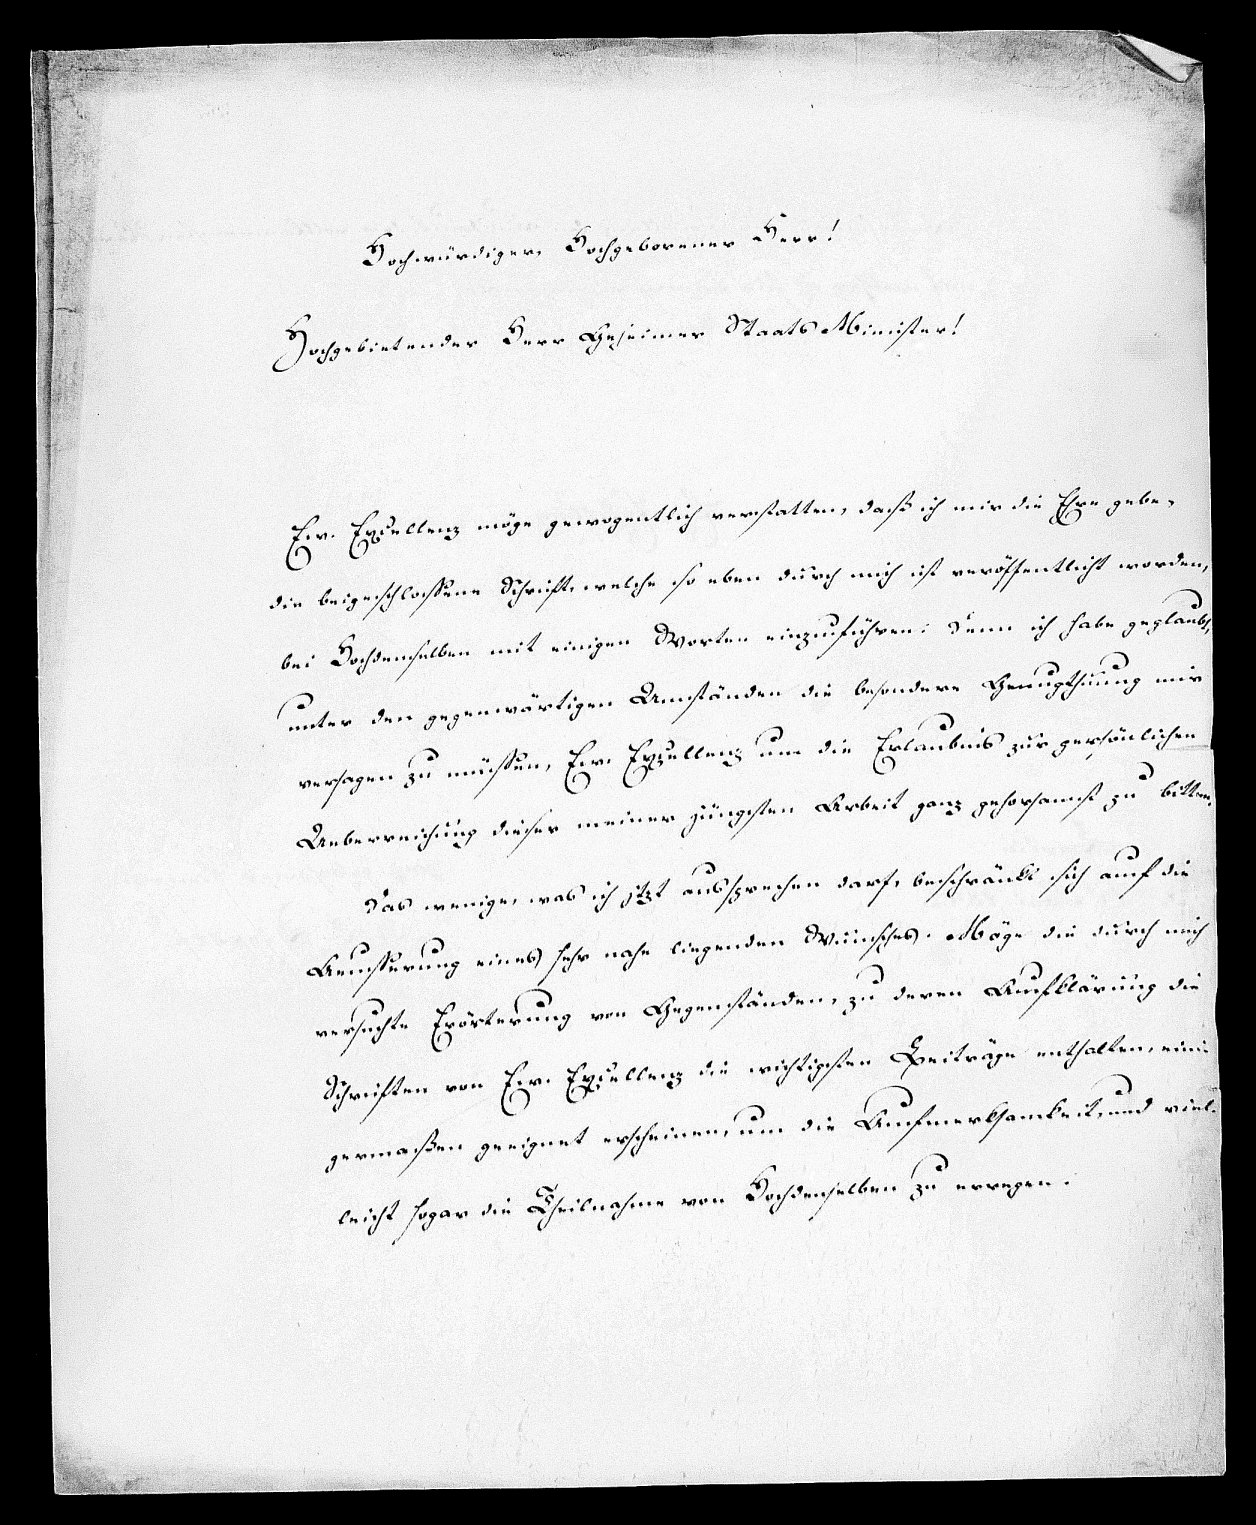 Hochwürdiger, Hochgeborener Herr!
Hochgebietender Herr Geheimer Staats Minister!
Ew. Exzellenz möge gewogentlich verstatten, daß ich mir die Ehre gebe,
die beigeschlossene Schrift, welche so eben durch mich ist veröffentlicht worden,
bei Hochdemselben mit einigen Worten einzuführen: denn ich habe geglaubt,
unter den gegenwärtigen Umständen die besondere Genugthuung mir
versagen zu müssen, Ew. Exzellenz um die Erlaubnis zur persönlichen
Ueberreichung dieser meiner jüngsten Arbeit ganz gehorsamst zu bitten.
Das wenige, was ich jtzt aussprechen darf, beschränkt sich auf die
Aeusserung eines sehr nahe liegenden Wunsches. Möge die durch mich
versuchte Erörterung von Gegenständen, zu deren Aufklärung die
Schriften von Ew. Exzellenz die wichtigsten Beiträge enthalten, eini-
germaßen geeignet erscheinen, um die Aufmerksamkeit, und viel-
leicht sogar die Theilnahme von Hochdenselben zu erregen.